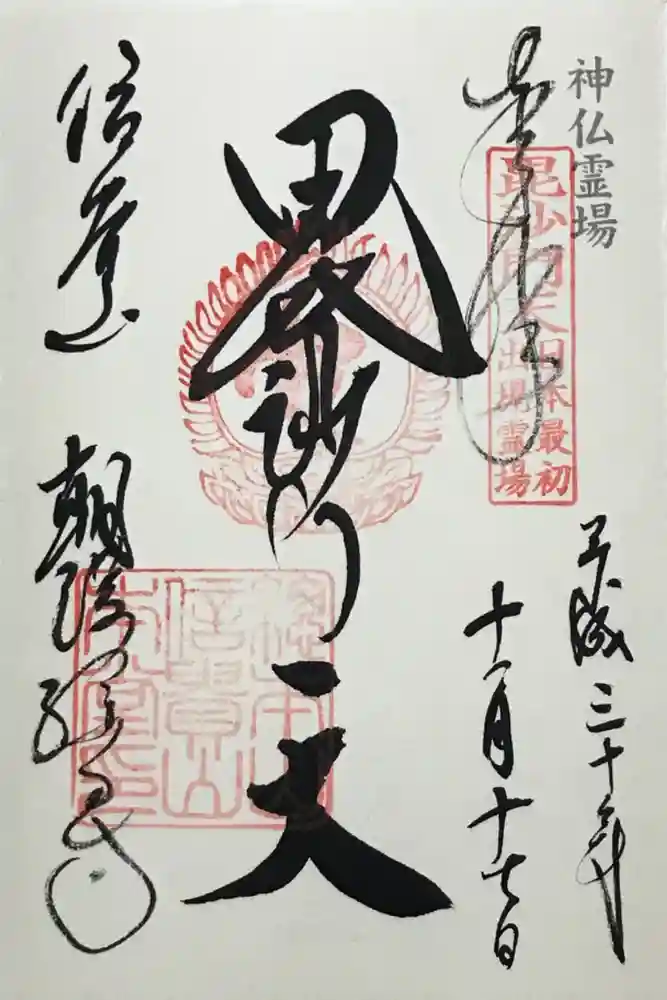 神仏霊場
奉拝
毘沙門天
日本最初
出現霊場
平成三十年
十一月十七日
毘沙門天
信貴山
朝護孫子寺
総本山
信貴山
本堂印